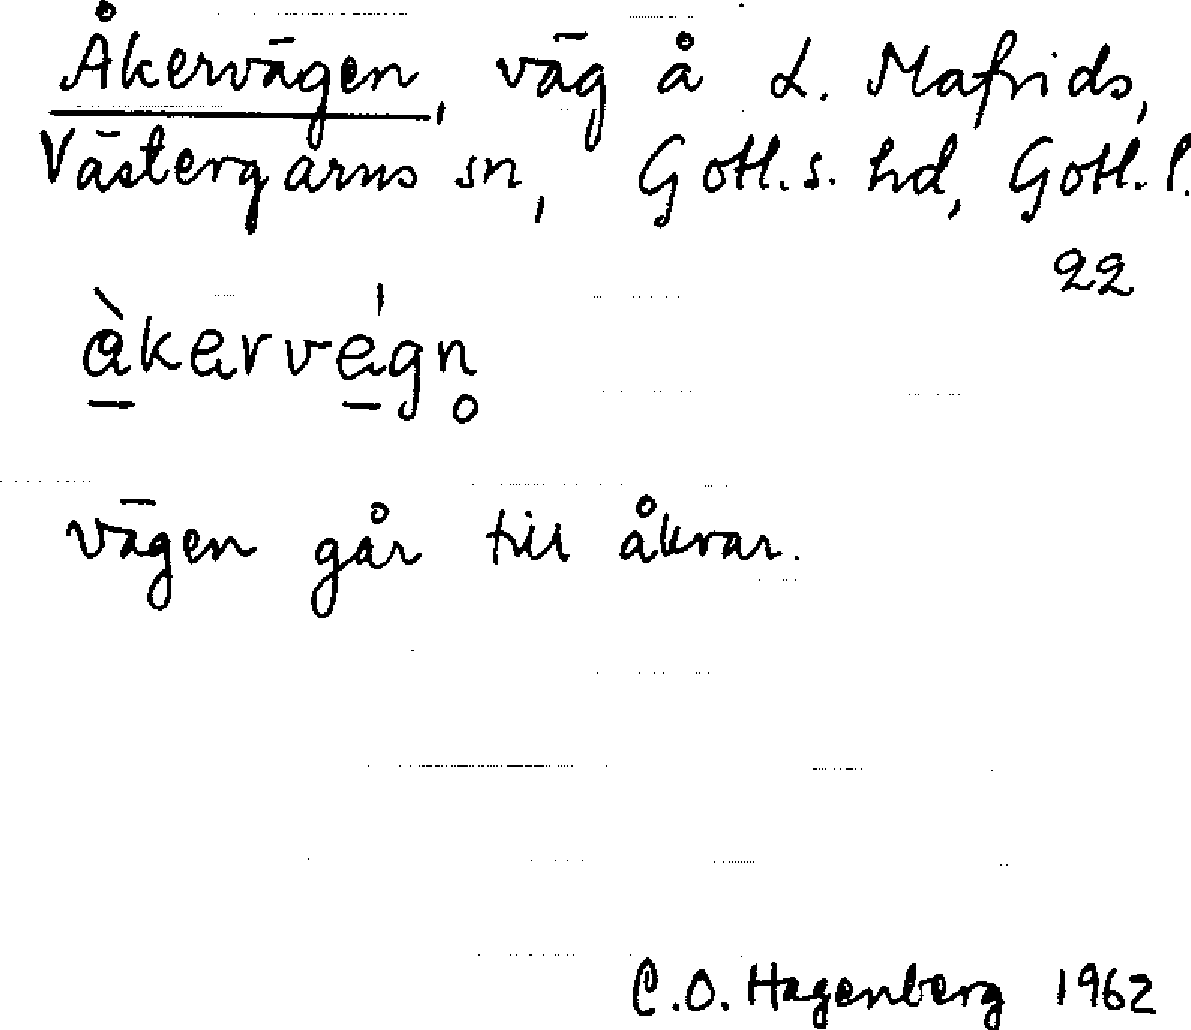 Åkervägen, väg å L. Mafrids,
Västergarns sn, Gotl. s. hd, Gotl. l.
22
åkervegn
Vägen går till åkrar.
C.O. Hagenberg 1962